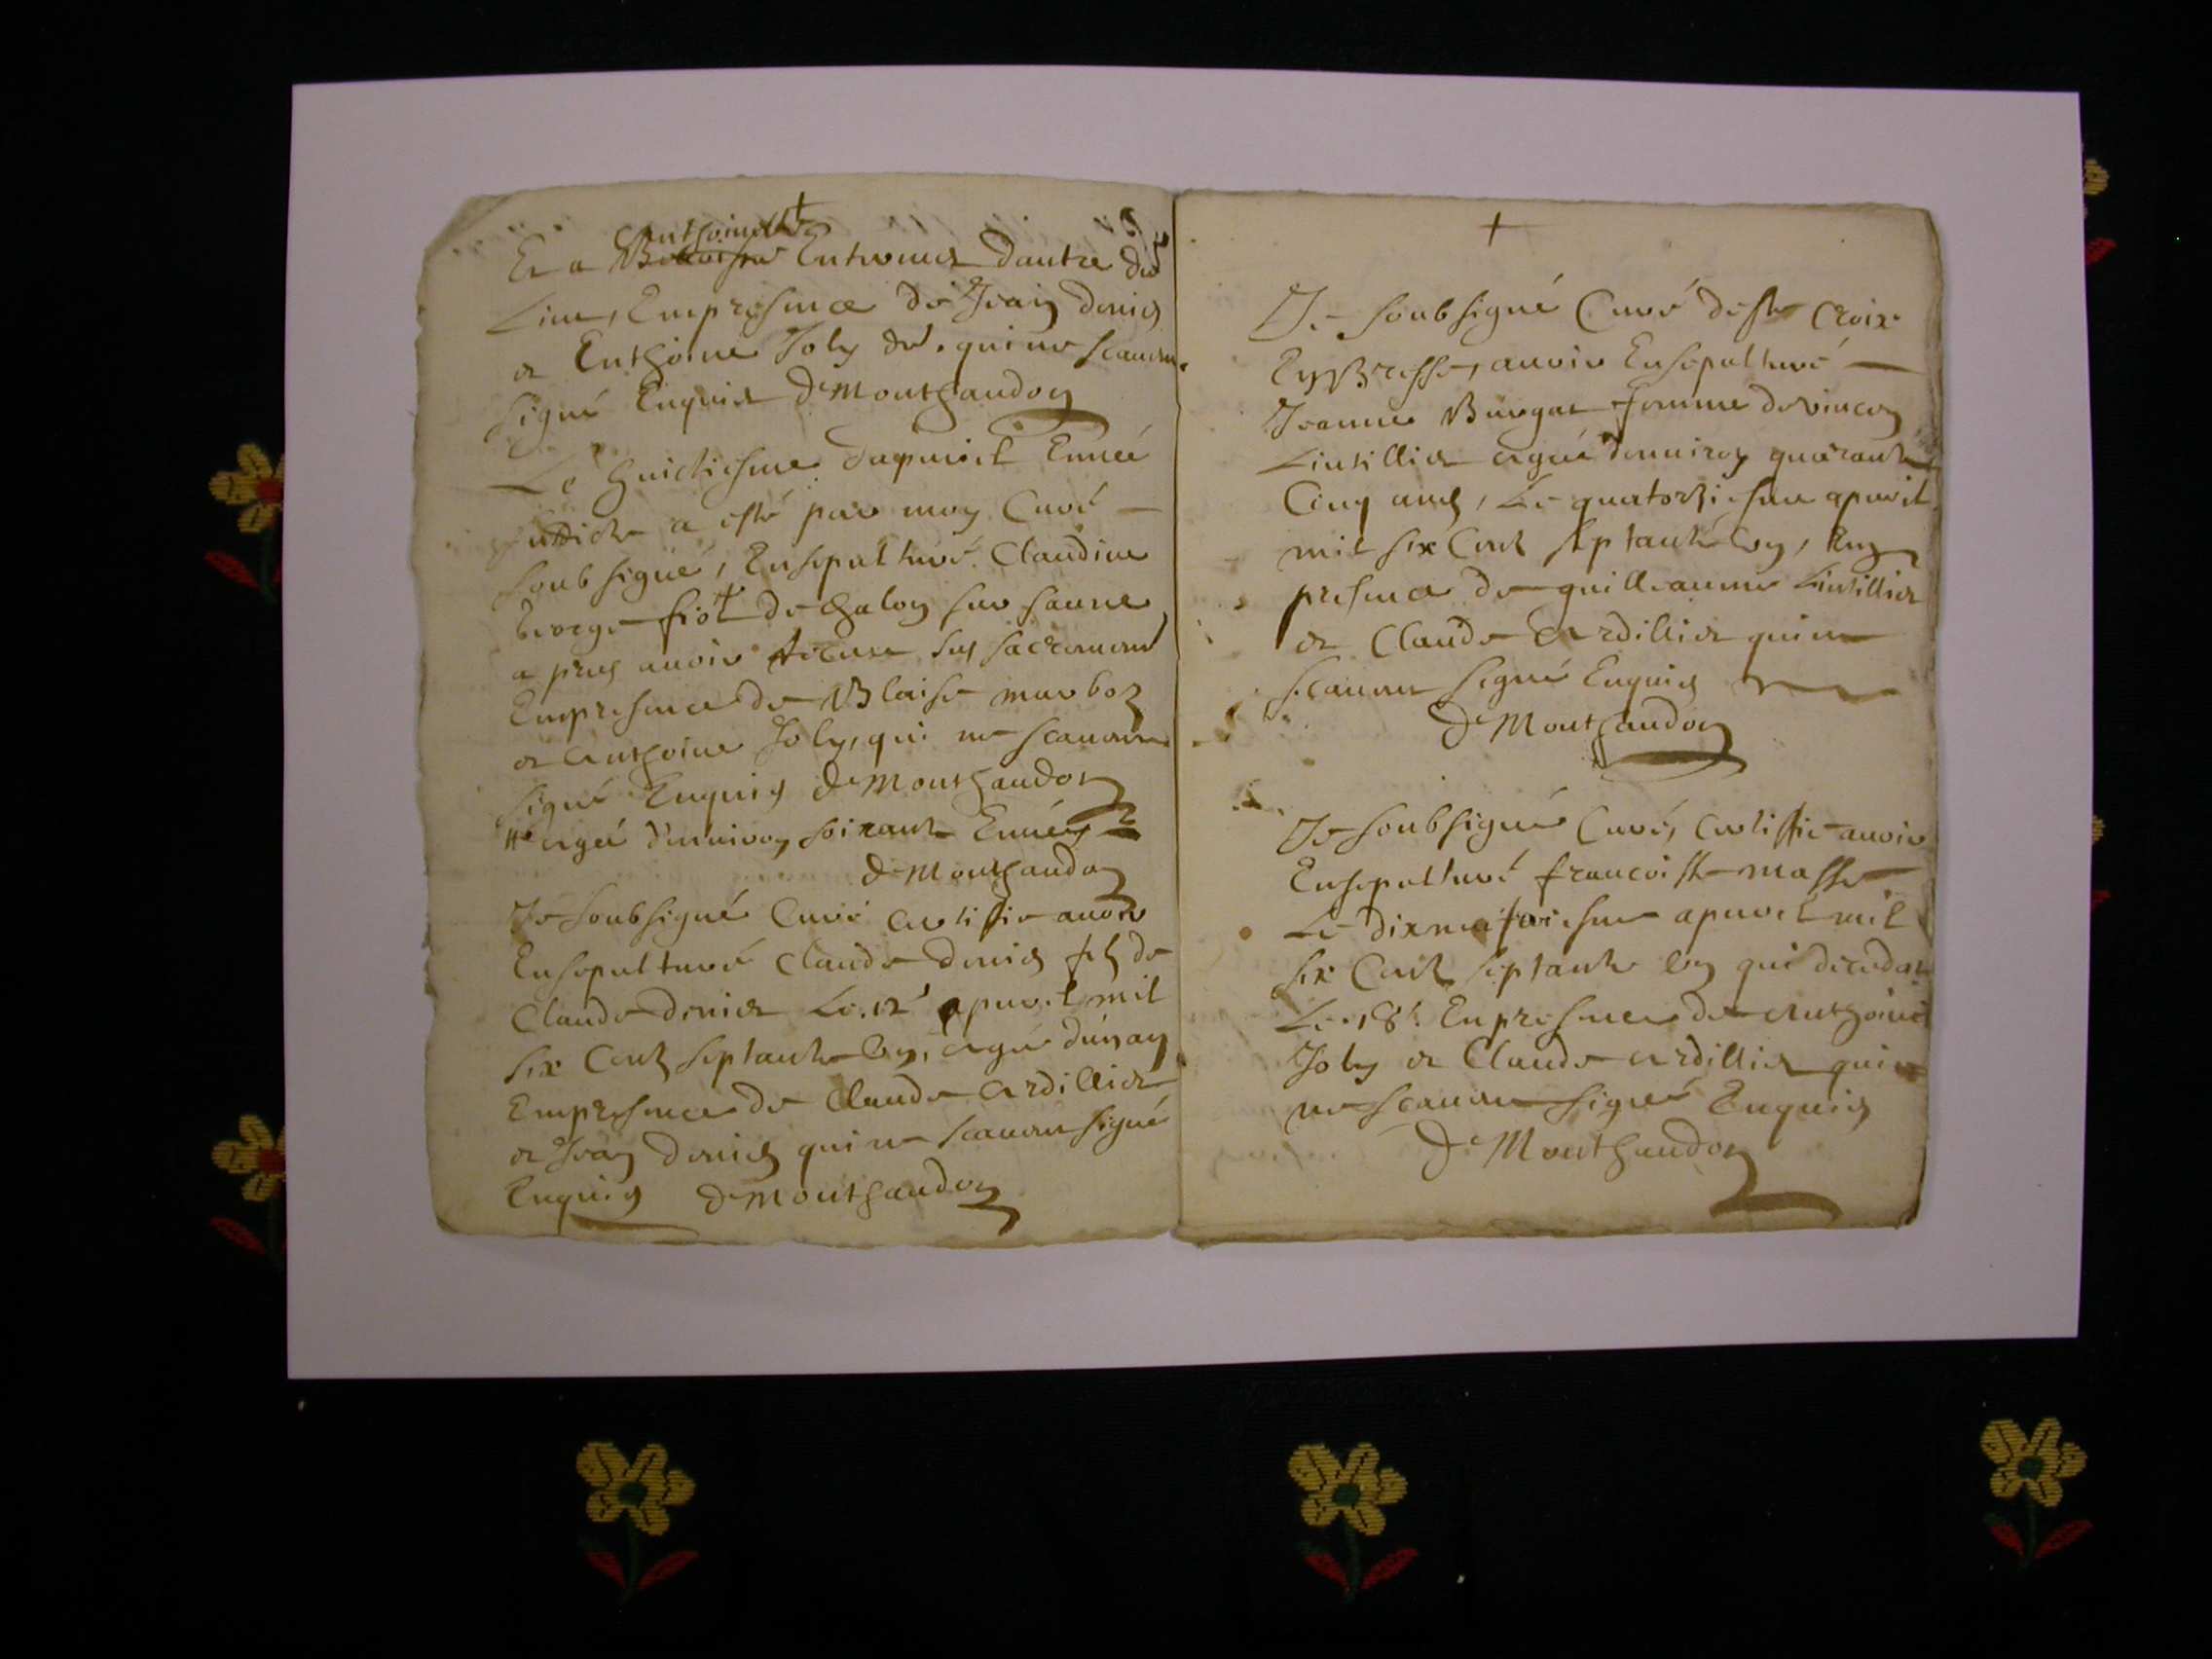 +
Anthoinette
Et a Entrouues dautre dud
Lieu, Empresence de Jean denis
et Enthoine Joly dud. qui ne scauent
signé Enquis DeMonthaudon
Le huictiesme dapuril Ennée
susdicte a esté par moy Curé
soubsigné, Ensepulturé Claudine
George fiot + de Chalon sur saune
a pres auoir receue ses sacrement
Empresence de Blaise marboz
et Anthoine Joly, qui ne scauent
signé Enquis DeMonthaudon
+ agée d'enuiron soixante Ennées
DeMonthaudon
Je soubsigné Curé certiffie auoir
Ensepulturé Claude denis fils de
Claude denis Le 12e apuril mil
six Cent septante un, agé d'un an
Empresence de Claude Ardillier
et Jean denis qui ne scauent signé
Enquis DeMonthaudon
+
Je soubsigné Curé de ste Croix
En Bresse, auoir Ensepulturé
Jeanne Burgat femme de vincent
Lintillier agée denuiron quarante
Cinq ans, Le quatorziesme apuril
mil six Cent septante un, En
presence de guilleaume Lintillier
et Claude Ardillier qui ne
scauent signé Enquis
DeMonthaudon
Je soubsigné Curé, certiffie auoir
Ensepulturé francoise masse
Le dixneufuiesme apuril mil
six Cent septante un qui deceda
Le 18e. Enpresence de Anthoine
Joly et Claude Ardillier qui
ne scauent signé Enquis
DeMonthaudon